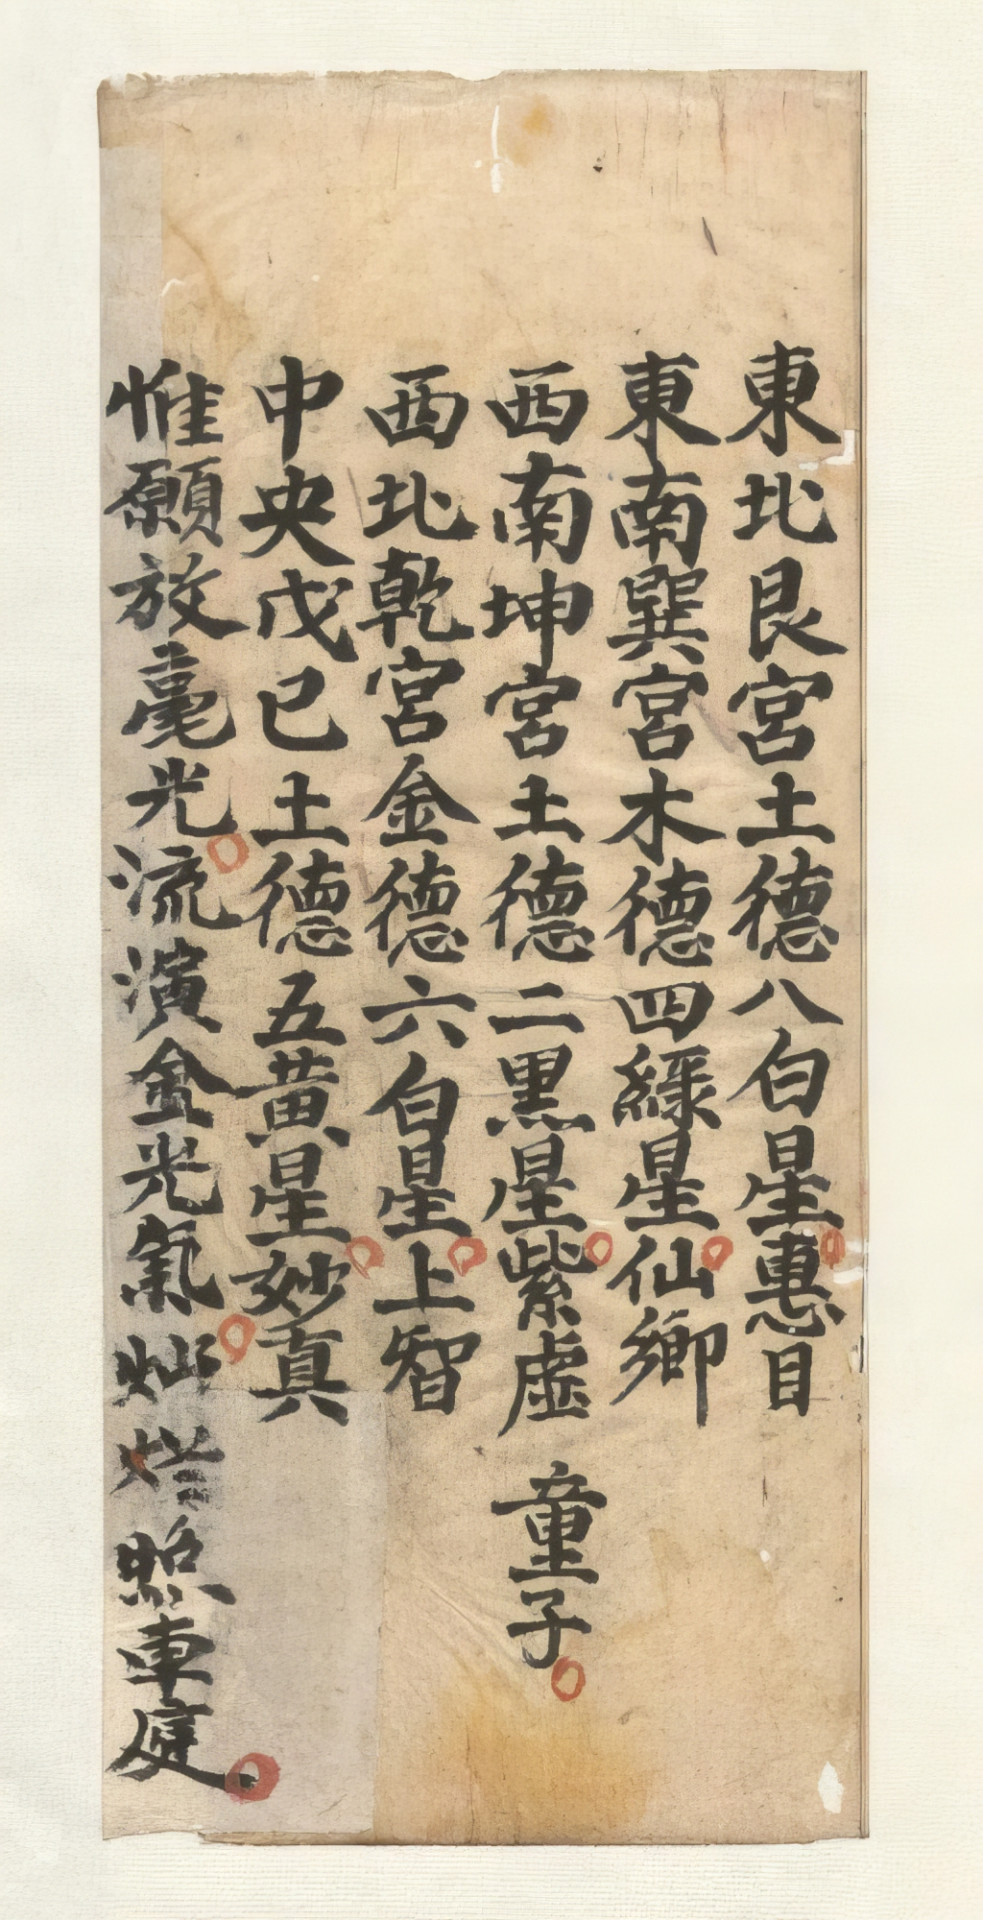 東北艮宮土德八白星惠目
東南巽宮木德四綠星仙鄉
西南坤宮土德二黑星紫虛
童子
西北乾宮金德六白星上智
中央戊己土德五黃星妙真
惟願放毫光流演金光氣灿烂照車庭